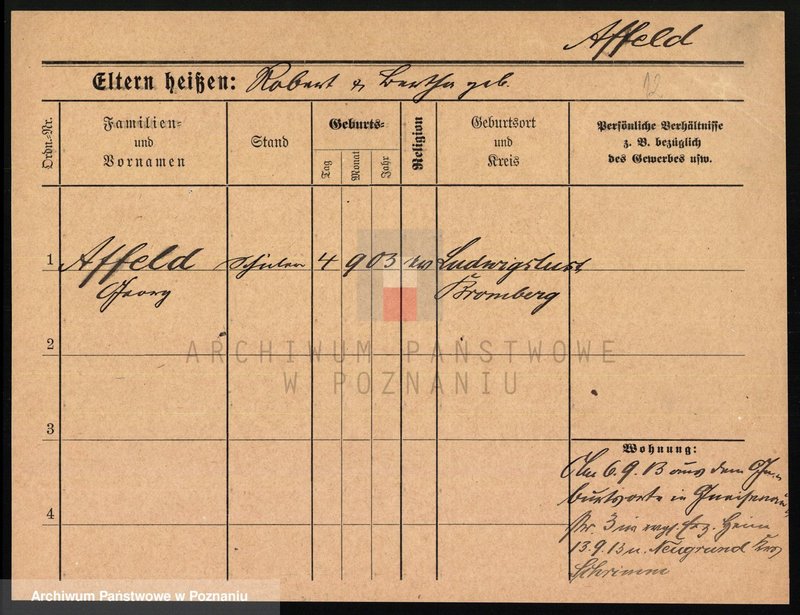 Affeld
12
Eltern heißen: Robert & Bertha geb.
Ordn.-Nr.
Familien-
und
Vornamen
Stand
Geburts-
Tag
Monat
Jahr
Religion
Geburtsort
und
Kreis
Persönliche Verhältnisse
z. B. bezüglich
des Gewerbes usw.
1 Affeld Schüler 4 9 03 ev Ludwigslust
Georg Bromberg
ARCHIWUM PAŃSTWOWE
W POZNANIU
2
3
Wohnung:
Am 6.9.13 aus dem Ge-
burtsorte in Gneisenau
str. 3 im evgl. Erz. Heim
4
13.9.13 n. Neugrund Krs
Schrimm
Archiwum Państwowe w Poznaniu